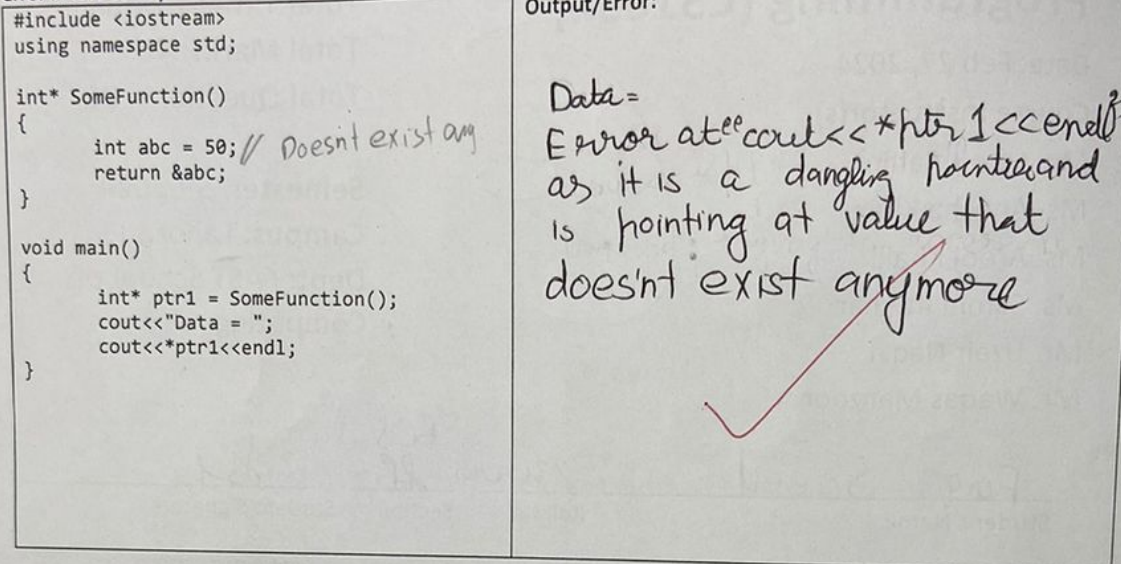 #include <iostream>
using namespace std;
int* SomeFunction()
{
int abc = 50; // Doesn't exist any
return &abc;
}
void main()
{
int* ptr1 = SomeFunction();
cout<<"Data = ";
cout<<*ptr1<<endl;
}
Output/Error:
Data =
Error at "cout<<*ptr1<<endl"
as it is a dangling and
is pointing at value that
does'nt exist anymore